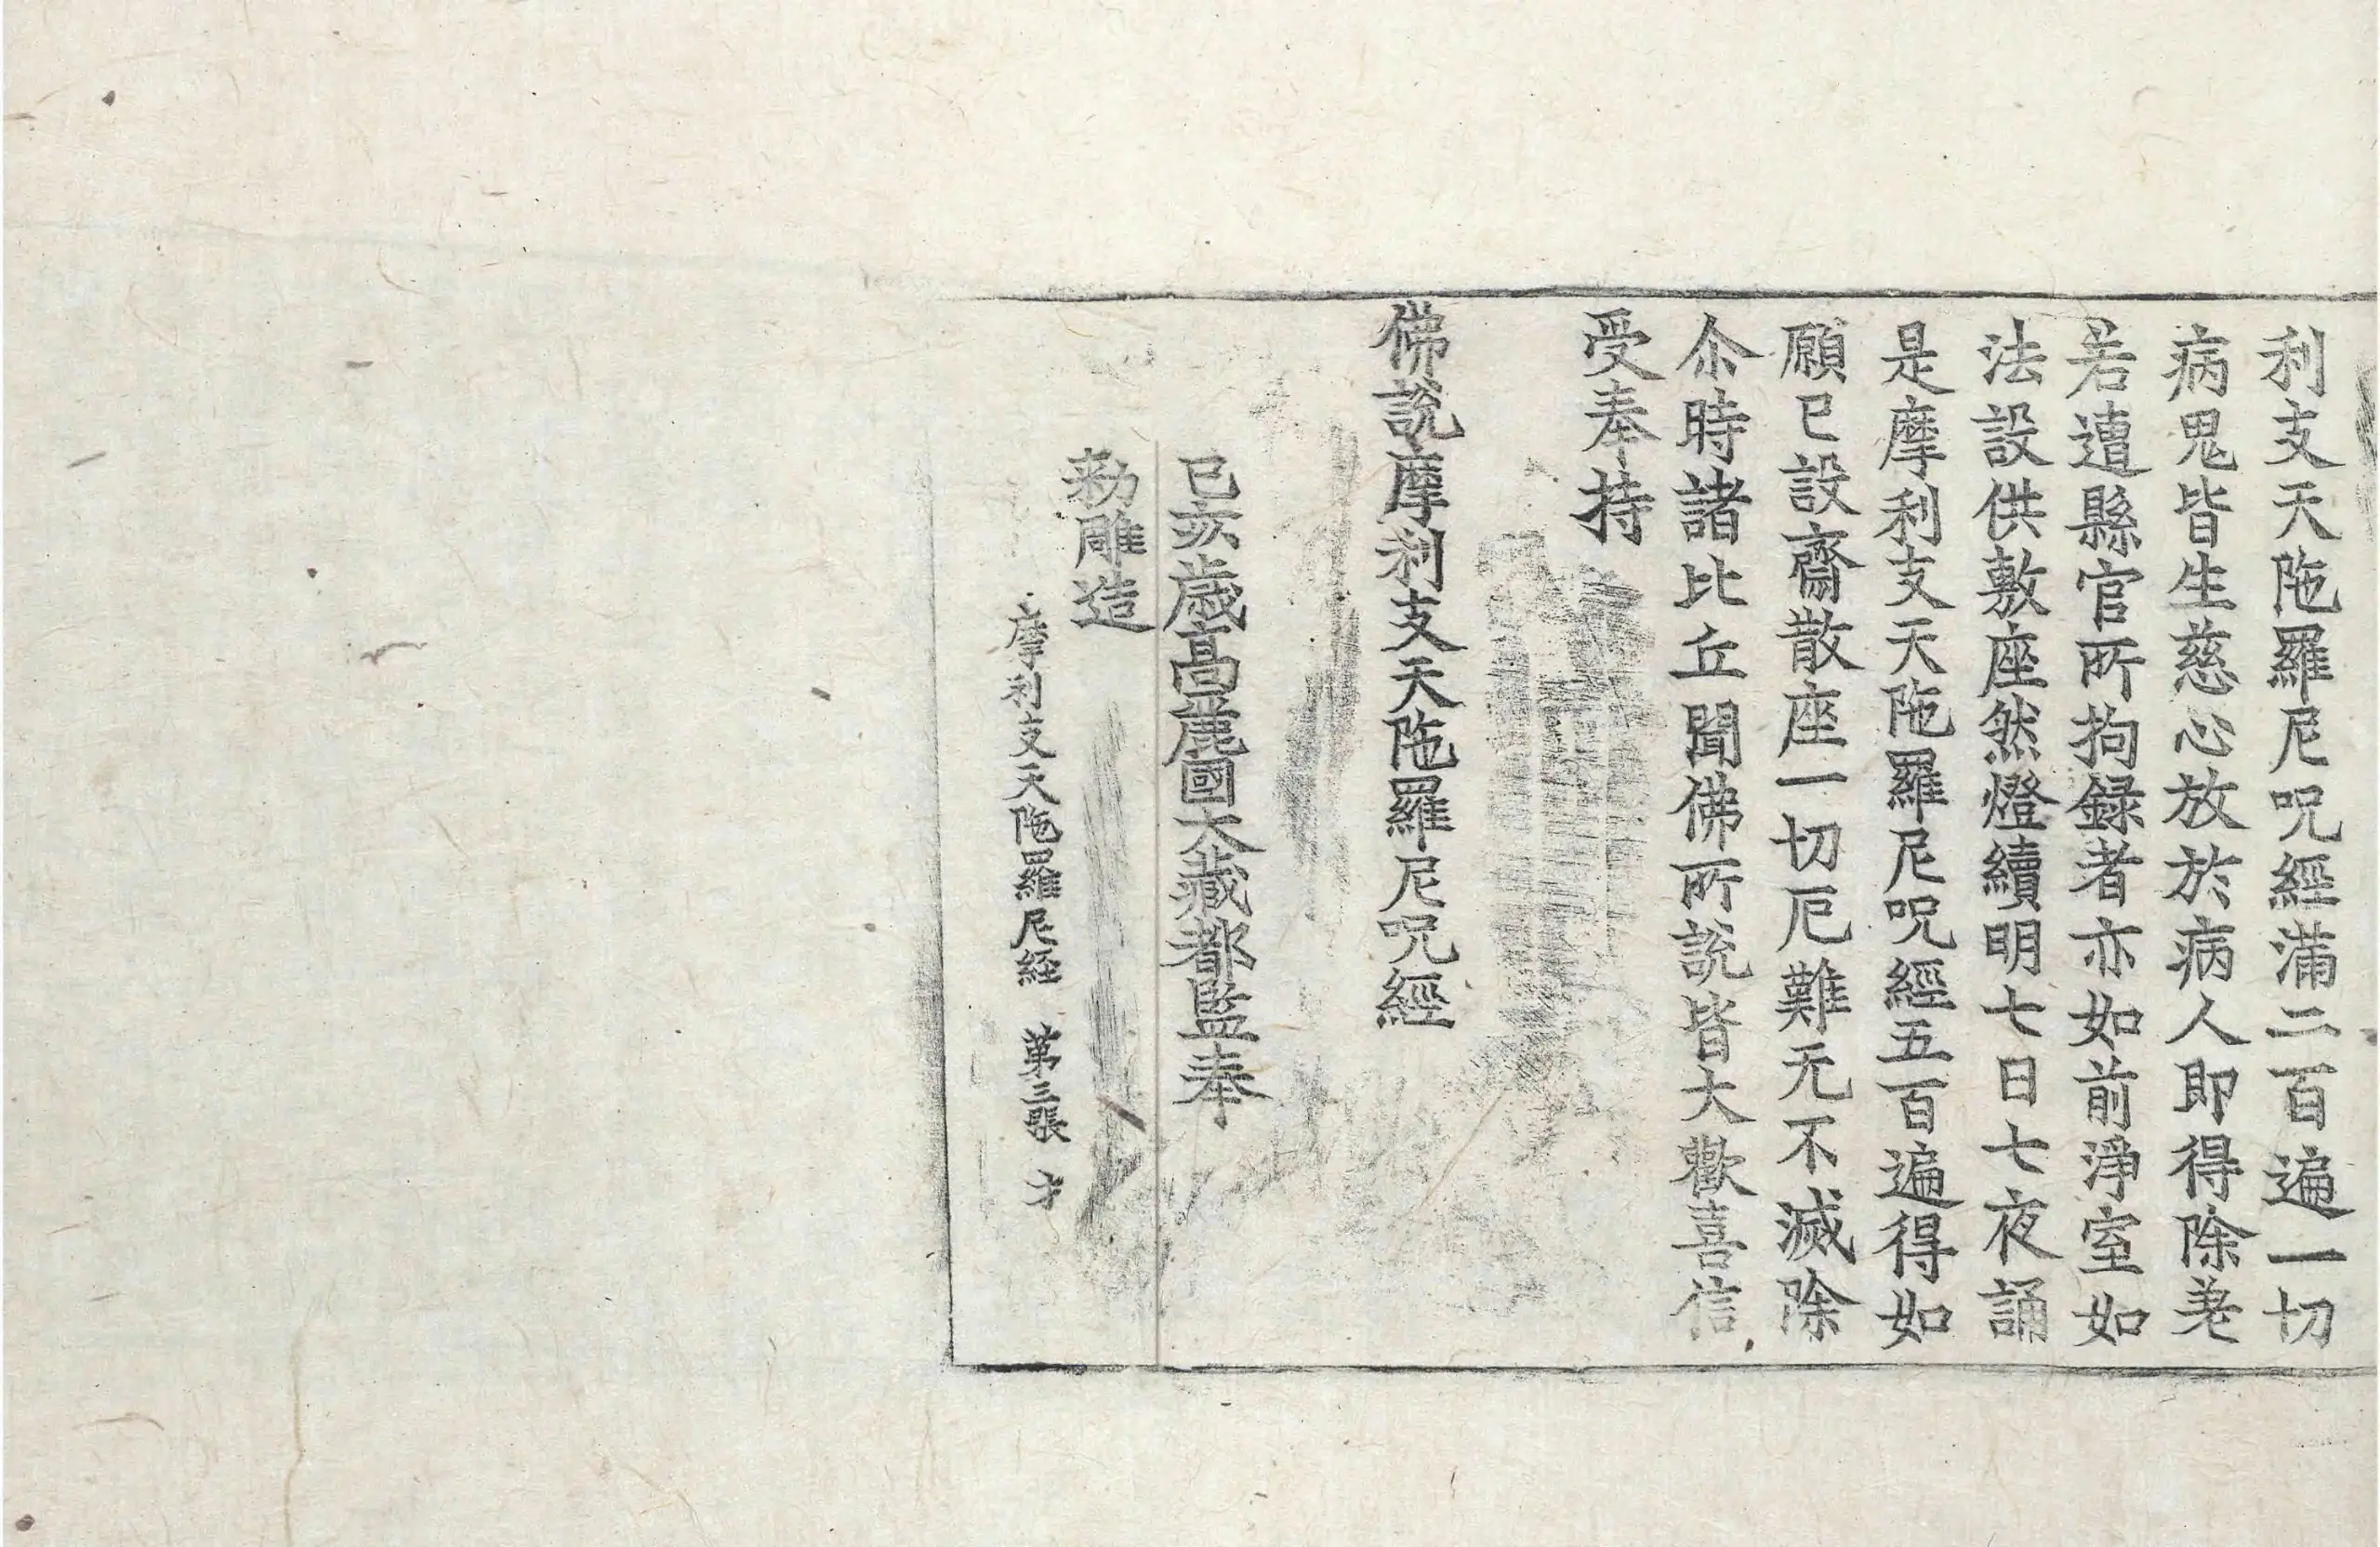 利支天陁羅尼呪經滿二百遍一切
病鬼皆生慈心放於病人即得除差
若遭縣官所拘録者亦如前淨室如
法設供敷座然燈續明七日七夜誦
是摩利支天陁羅尼呪經五百遍得如
願已設齋散座一切厄難无不滅除
尒時諸比丘聞佛所說皆大歡喜信
受奉持
佛說摩利支天陁羅尼呪經
己亥歲高麗國大藏都監奉
勑雕造
摩利支天陁羅尼經 第三張 才